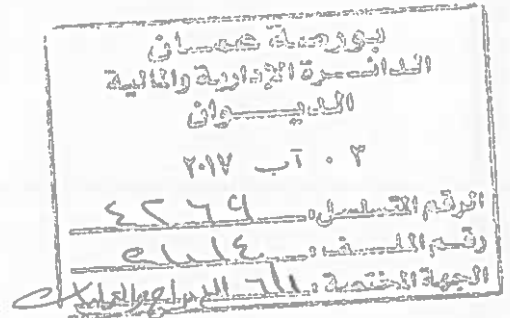 بورصة عمان
الدائرة الإدارية والمالية
الديوان
٠٣ آب ٢٠١٧
الرقم المتسلسل: ٤٢٦٩
رقم الملف:
الجهة المختصة: